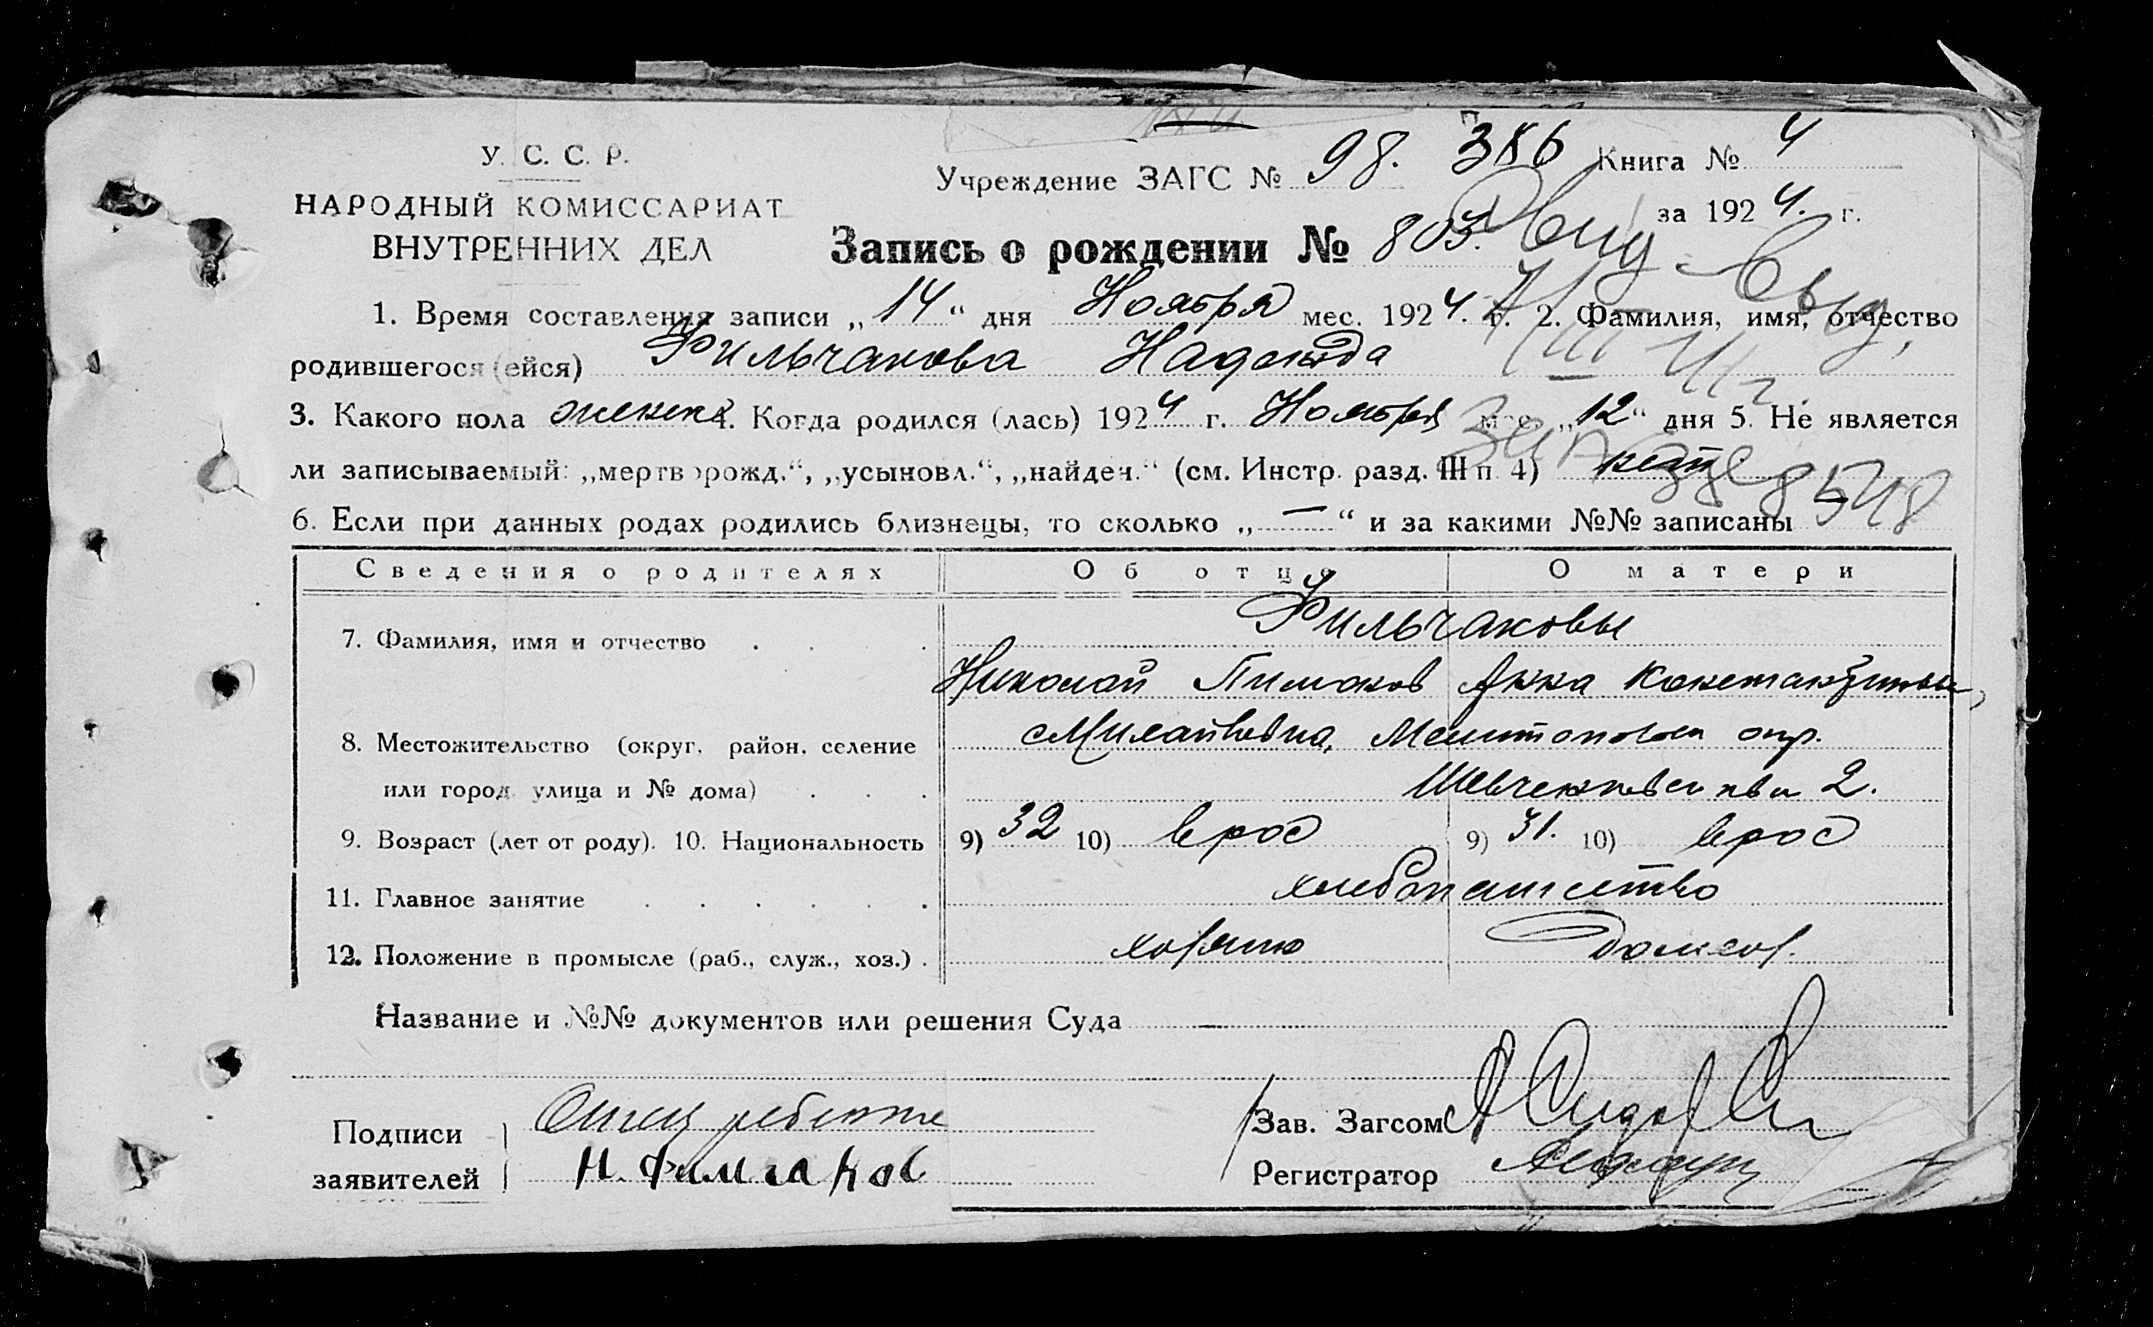 У. С. С. Р.
НАРОДНЫЙ КОМИССАРИАТ
ВНУТРЕННИХ ДЕЛ
Учреждение ЗАГС № 98. 386 Книга № 4
за 1924. г.
Запись о рождении № 803.
1. Время составления записи „14“ дня Ноября мес. 1924. г. 2. Фамилия, имя, отчество
родившегося (ейся) Фильчакова Надежда
3. Какого пола женск 4. Когда родился (лась) 1924 г. Ноября мес. „12“ дня 5. Не является
ли записываемый: „мертворожд.“, „усыновл.“, „найден.“ (см. Инстр. разд. III п. 4) нет
6. Если при данных родах родились близнецы, то сколько „—“ и за какими №№ записаны
Сведения о родителях Об отце О матери
7. Фамилия, имя и отчество Фильчаковы
Николай Анна
8. Местожительство (округ, район, селение
или город, улица и № дома) 2.
9. Возраст (лет от роду). 10. Национальность 9) 32 10) врос 9) 31. 10) врос
11. Главное занятие хлебопашество
12. Положение в промысле (раб., служ., хоз.) хозяин домхоз.
Название и №№ документов или решения Суда —
Подписи
заявителей
Отец ребенка
Н. Филчаков
Зав. Загсом
Регистратор